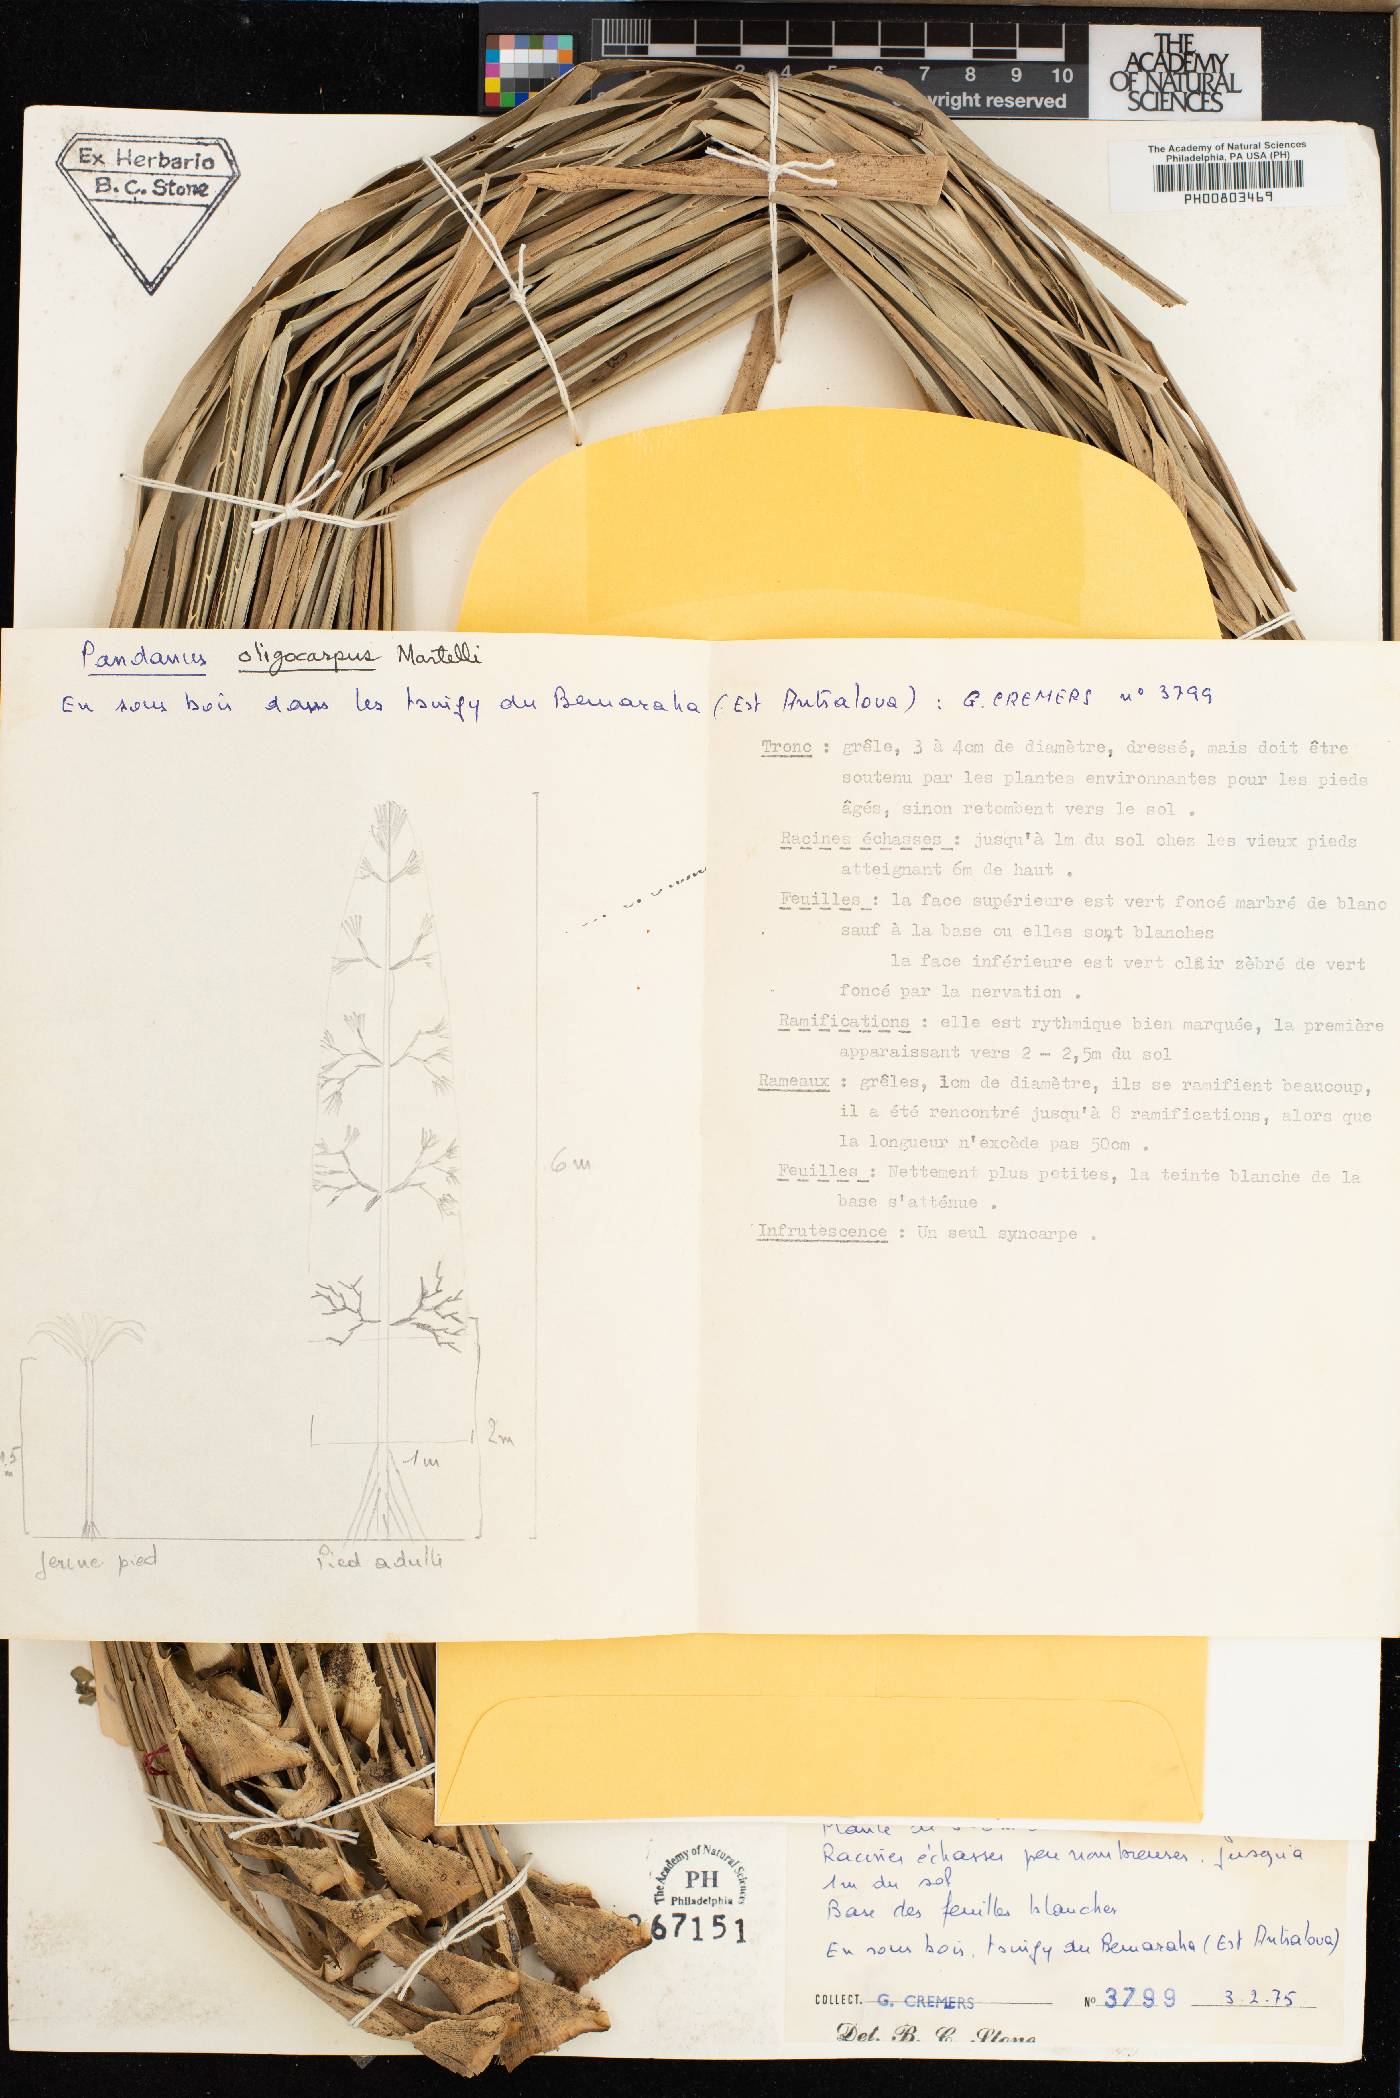 THE
ACADEMY
OF NATURAL
SCIENCES
4 5 6 7 8 9 10
copyright reserved
The Academy of Natural Sciences
Philadelphia, PA USA (PH)
PH00803469
Ex Herbario
B. C. Stone
Pandanus oligocarpus Martelli
En sous bois dans les tsingy du Bemaraha (Est Antsalova) : G. CREMERS n° 3799
Tronc : grêle, 3 à 4cm de diamètre, dressé, mais doit être
soutenu par les plantes environnantes pour les pieds
âgés, sinon retombent vers le sol .
Racines échasses : jusqu'à 1m du sol chez les vieux pieds
atteignant 6m de haut .
Feuilles : la face supérieure est vert foncé marbré de blanc
sauf à la base ou elles sont blanches
la face inférieure est vert clair zèbré de vert
foncé par la nervation .
Ramifications : elle est rythmique bien marquée, la première
apparaissant vers 2 - 2,5m du sol
Rameaux : grêles, 1cm de diamètre, ils se ramifient beaucoup,
il a été rencontré jusqu'à 8 ramifications, alors que
la longueur n'excède pas 50cm .
Feuilles : Nettement plus petites, la teinte blanche de la
base s'atténue .
Infrutescence : Un seul syncarpe .
6m
2m
1m
1,5
m
Jeune pied
Pied adulte
Plante de
Racines échasses peu nombreuses. Jusqu'à
1m du sol
Base des feuilles blanches
En sous bois. tsingy du Bemaraha (Est Antsalova)
COLLECT. G. CREMERS N° 3799 3.2.75
Det. B. C. Stone
The Academy of Natural Sciences
PH
Philadelphia
67151